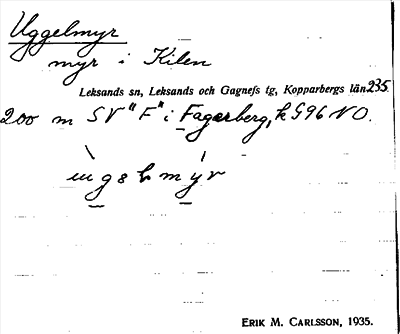 Uggelmyr
myr i Kilen
Leksands sn, Leksands och Gagnefs tg, Kopparbergs län 235
200 m SV "F" i Fagerberg, k G96 NO.
ERIK M. CARLSSON, 1935.